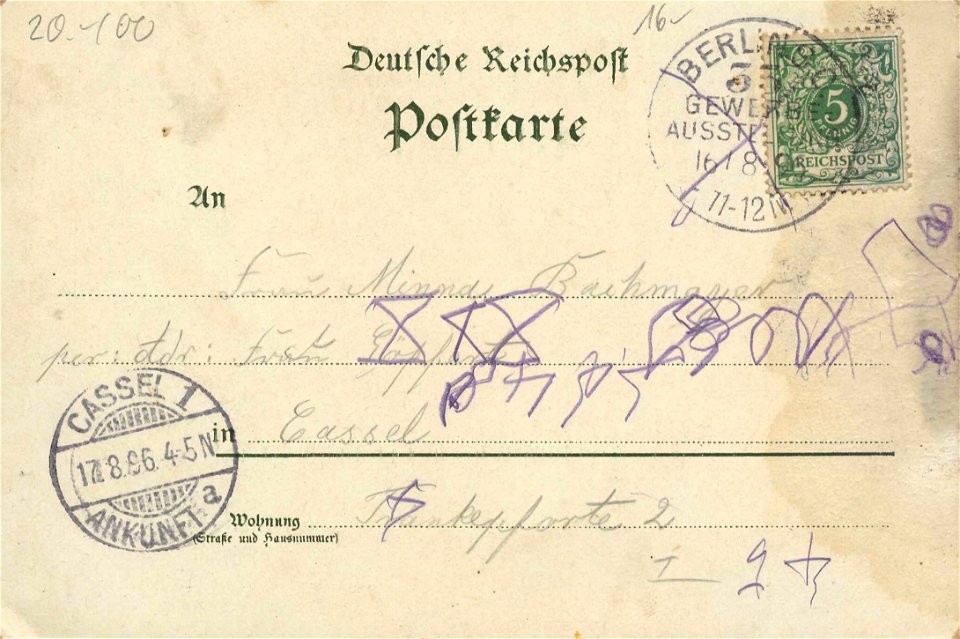 20.-100
16-
Deutsche Reichspost
Postkarte
BERLIN
3
GEWE
AUSSTE
16/8
11-12 N
5
PFENNIG
REICHSPOST
An
Frau Minna Bachmayer
per: Adr: Frau
CASSEL 1
17.8.96. 4-5 N
a
ANKUNFT
in Cassel
Wohnung
(Straße und Hausnummer)
2